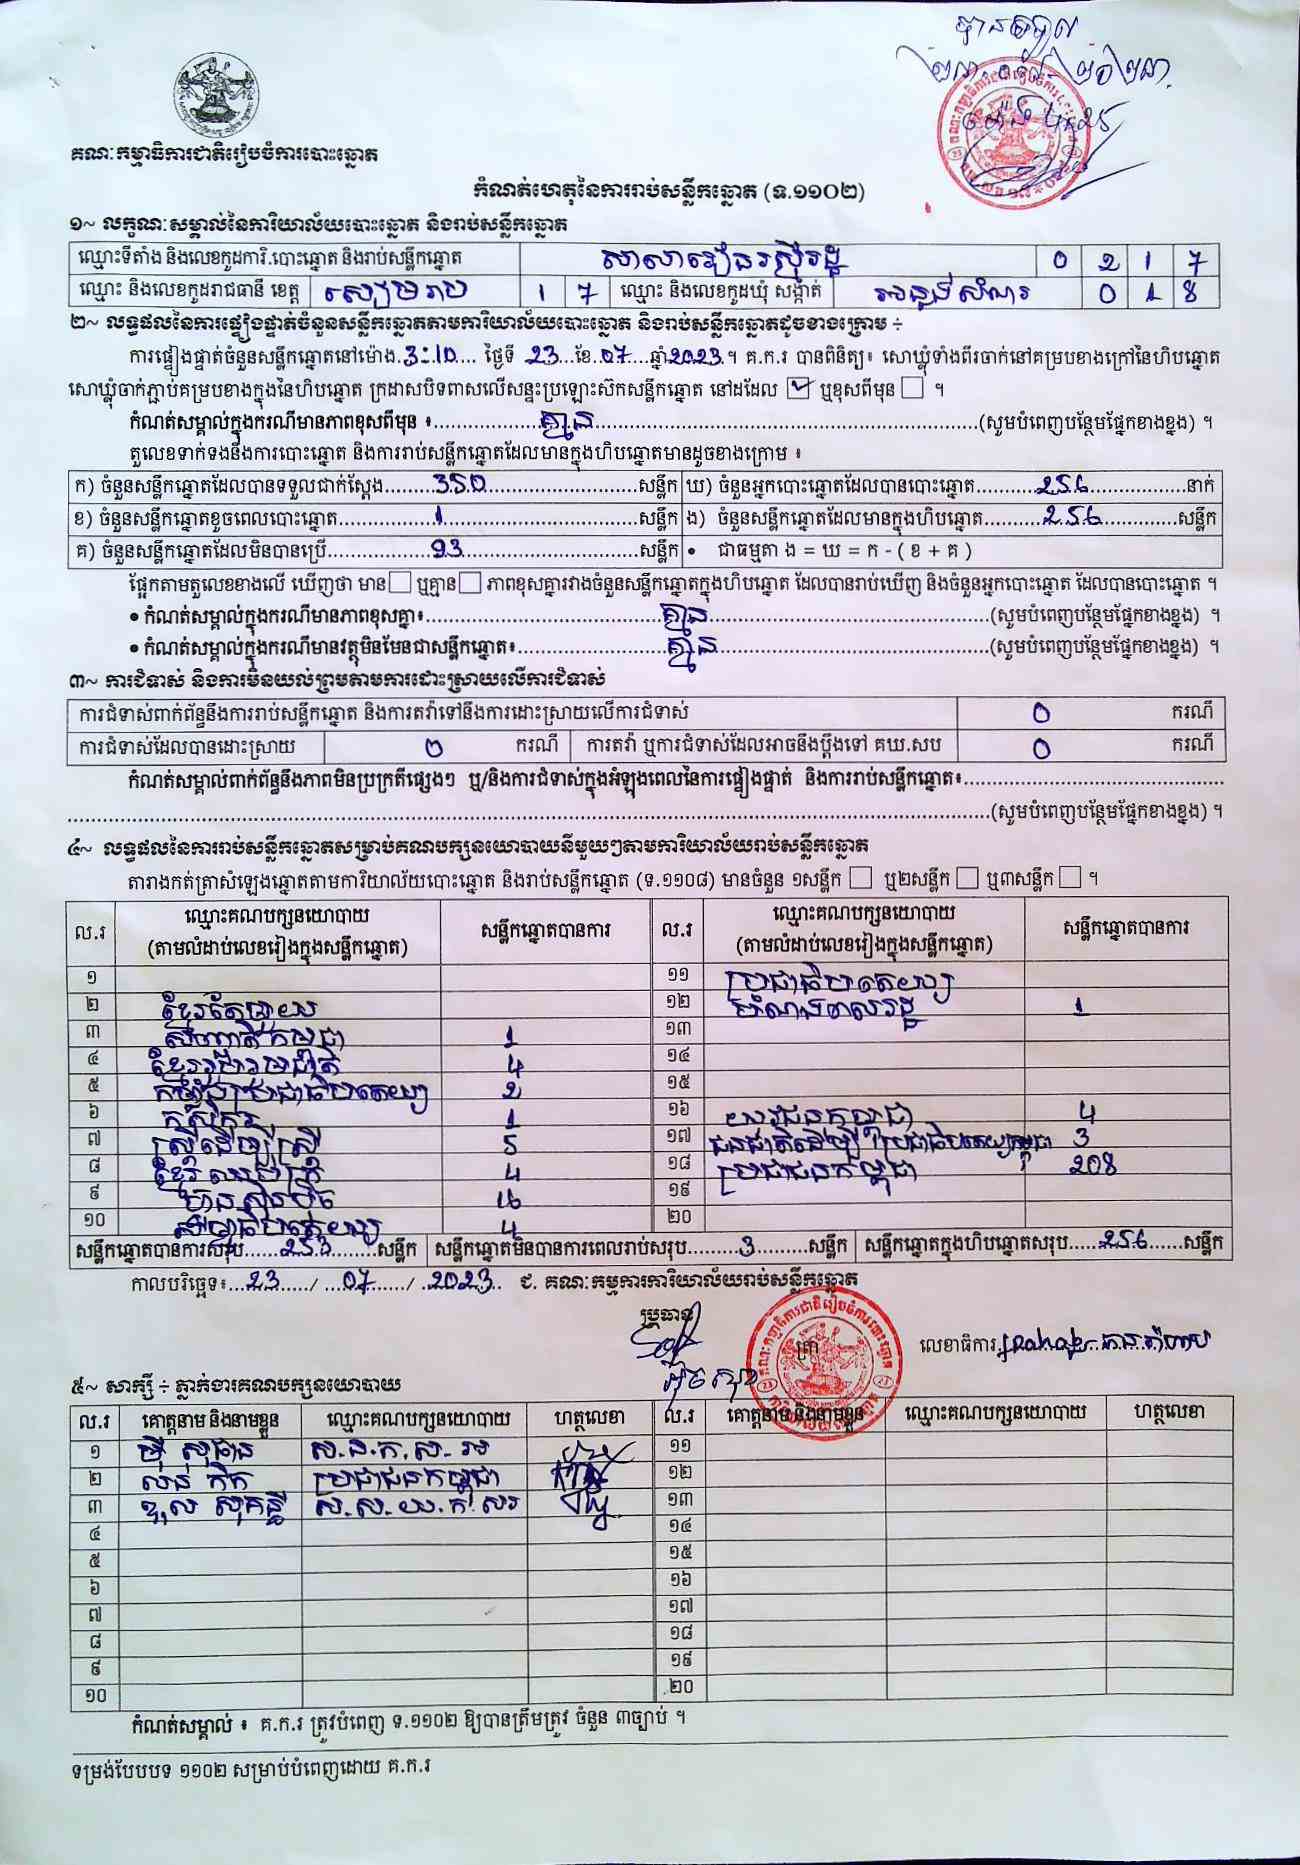 គណៈកម្មាធិការជាតិរៀបចំការបោះឆ្នោត
កំណត់ហេតុនៃការរាប់សន្លឹកឆ្នោត (ទ.១១០២)
១~ លក្ខណៈសម្គាល់នៃការិយាល័យបោះឆ្នោត និងរាប់សន្លឹកឆ្នោត
ឈ្មោះទីតាំង និងលេខកូដការិ.បោះឆ្នោត និងរាប់សន្លឹកឆ្នោត សាលារៀន 0 2 1 7
ឈ្មោះ និងលេខកូដរាជធានី ខេត្ត សៀមរាប 1 7 ឈ្មោះ និងលេខកូដឃុំ សង្កាត់ អន្លង់សំណរ 0 1 8
២~ លទ្ធផលនៃការផ្ទៀងផ្ទាត់ចំនួនសន្លឹកឆ្នោតតាមការិយាល័យបោះឆ្នោត និងរាប់សន្លឹកឆ្នោតដូចខាងក្រោម ÷
ការផ្ទៀងផ្ទាត់ចំនួនសន្លឹកឆ្នោតនៅម៉ោង.3:10.... ថ្ងៃទី 23...ខែ.07...ឆ្នាំ2023.។ គ.ក.រ បានពិនិត្យ៖ សោឃ្លុំទាំងពីរចាក់នៅគម្របខាងក្រៅនៃហិបឆ្នោត
សោឃ្លុំចាក់ភ្ជាប់គម្របខាងក្នុងនៃហិបឆ្នោត ក្រដាសបិទពាសលើសន្ទះប្រឡោះស៊កសន្លឹកឆ្នោត នៅដដែល ☑ ឬខុសពីមុន ☐ ។
កំណត់សម្គាល់ក្នុងករណីមានភាពខុសពីមុន ៖..........គ្មាន..........(សូមបំពេញបន្ថែមផ្នែកខាងខ្នង) ។
តួលេខទាក់ទងនឹងការបោះឆ្នោត និងការរាប់សន្លឹកឆ្នោតដែលមានក្នុងហិបឆ្នោតមានដូចខាងក្រោម ៖
ក) ចំនួនសន្លឹកឆ្នោតដែលបានទទួលជាក់ស្តែង.......350..........សន្លឹក ឃ) ចំនួនអ្នកបោះឆ្នោតដែលបានបោះឆ្នោត.......256..........នាក់
ខ) ចំនួនសន្លឹកឆ្នោតខូចពេលបោះឆ្នោត..........1..........សន្លឹក ង) ចំនួនសន្លឹកឆ្នោតដែលមានក្នុងហិបឆ្នោត.......256..........សន្លឹក
គ) ចំនួនសន្លឹកឆ្នោតដែលមិនបានប្រើ..........93..........សន្លឹក • ជាធម្មតា ង = ឃ = ក - ( ខ + គ )
ផ្អែកតាមតួលេខខាងលើ ឃើញថា មាន☐ ឬគ្មាន☐ ភាពខុសគ្នារវាងចំនួនសន្លឹកឆ្នោតក្នុងហិបឆ្នោត ដែលបានរាប់ឃើញ និងចំនួនអ្នកបោះឆ្នោត ដែលបានបោះឆ្នោត ។
• កំណត់សម្គាល់ក្នុងករណីមានភាពខុសគ្នា៖..........គ្មាន..........(សូមបំពេញបន្ថែមផ្នែកខាងខ្នង) ។
• កំណត់សម្គាល់ក្នុងករណីមានវត្ថុមិនមែនជាសន្លឹកឆ្នោត៖..........គ្មាន..........(សូមបំពេញបន្ថែមផ្នែកខាងខ្នង) ។
៣~ ការជំទាស់ និងការមិនយល់ព្រមតាមការដោះស្រាយលើការជំទាស់
ការជំទាស់ពាក់ព័ន្ធនឹងការរាប់សន្លឹកឆ្នោត និងការតវ៉ាទៅនឹងការដោះស្រាយលើការជំទាស់ 0 ករណី
ការជំទាស់ដែលបានដោះស្រាយ ០ ករណី ការតវ៉ា ឬការជំទាស់ដែលអាចនឹងប្តឹងទៅ គឃ.សប 0 ករណី
កំណត់សម្គាល់ពាក់ព័ន្ធនឹងភាពមិនប្រក្រតីផ្សេងៗ ឬ/និងការជំទាស់ក្នុងអំឡុងពេលនៃការផ្ទៀងផ្ទាត់ និងការរាប់សន្លឹកឆ្នោត៖..........
..........(សូមបំពេញបន្ថែមផ្នែកខាងខ្នង) ។
៤~ លទ្ធផលនៃការរាប់សន្លឹកឆ្នោតសម្រាប់គណបក្សនយោបាយនីមួយៗតាមការិយាល័យរាប់សន្លឹកឆ្នោត
តារាងកត់ត្រាសំឡេងឆ្នោតតាមការិយាល័យបោះឆ្នោត និងរាប់សន្លឹកឆ្នោត (ទ.១១០៨) មានចំនួន ១សន្លឹក ☐ ឬ២សន្លឹក ☐ ឬ៣សន្លឹក ☐ ។
ល.រ ឈ្មោះគណបក្សនយោបាយ (តាមលំដាប់លេខរៀងក្នុងសន្លឹកឆ្នោត) សន្លឹកឆ្នោតបានការ ល.រ ឈ្មោះគណបក្សនយោបាយ (តាមលំដាប់លេខរៀងក្នុងសន្លឹកឆ្នោត) សន្លឹកឆ្នោតបានការ
១ ១១ ប្រជាធិបតេយ្យ
២ ខ្មែរតែមួយ ១២ សំណង់ 1
៣ សញ្ជាតិកម្ពុជា 1 ១៣
៤ ខ្មែររួបរួមជាតិ 4 ១៤
៥ កម្លាំងប្រជាធិបតេយ្យ 2 ១៥
៦ កសិករ 1 ១៦ យុវជនកម្ពុជា 4
៧ ស្រីដើម្បីស្រី 5 ១៧ ជនជាតិដើម្បីប្រជាធិបតេយ្យកម្ពុជា 3
៨ ខ្មែរ 4 ១៨ ប្រជាជនកម្ពុជា 208
៩ ហ៊្វុនស៊ិនប៉ិច 16 ១៩
១០ 4 ២០
សន្លឹកឆ្នោតបានការសរុប......253........សន្លឹក សន្លឹកឆ្នោតមិនបានការពេលរាប់សរុប.........3.........សន្លឹក សន្លឹកឆ្នោតក្នុងហិបឆ្នោតសរុប.....256......សន្លឹក
កាលបរិច្ឆេទ៖...23....../ ...07....../ ..2023.. ជ. គណៈកម្មការការិយាល័យរាប់សន្លឹកឆ្នោត
ប្រធាន
ត្រា
លេខាធិការ
៥~ សាក្សី ÷ ភ្នាក់ងារគណបក្សនយោបាយ
ល.រ គោត្តនាម និងនាមខ្លួន ឈ្មោះគណបក្សនយោបាយ ហត្ថលេខា ល.រ គោត្តនាម និងនាមខ្លួន ឈ្មោះគណបក្សនយោបាយ ហត្ថលេខា
១ ១១
២ ប្រជាជនកម្ពុជា ១២
៣ ១៣
៤ ១៤
៥ ១៥
៦ ១៦
៧ ១៧
៨ ១៨
៩ ១៩
១០ ២០
កំណត់សម្គាល់ ៖ គ.ក.រ ត្រូវបំពេញ ទ.១១០២ ឱ្យបានត្រឹមត្រូវ ចំនួន ៣ច្បាប់ ។
ទម្រង់បែបបទ ១១០២ សម្រាប់បំពេញដោយ គ.ក.រ